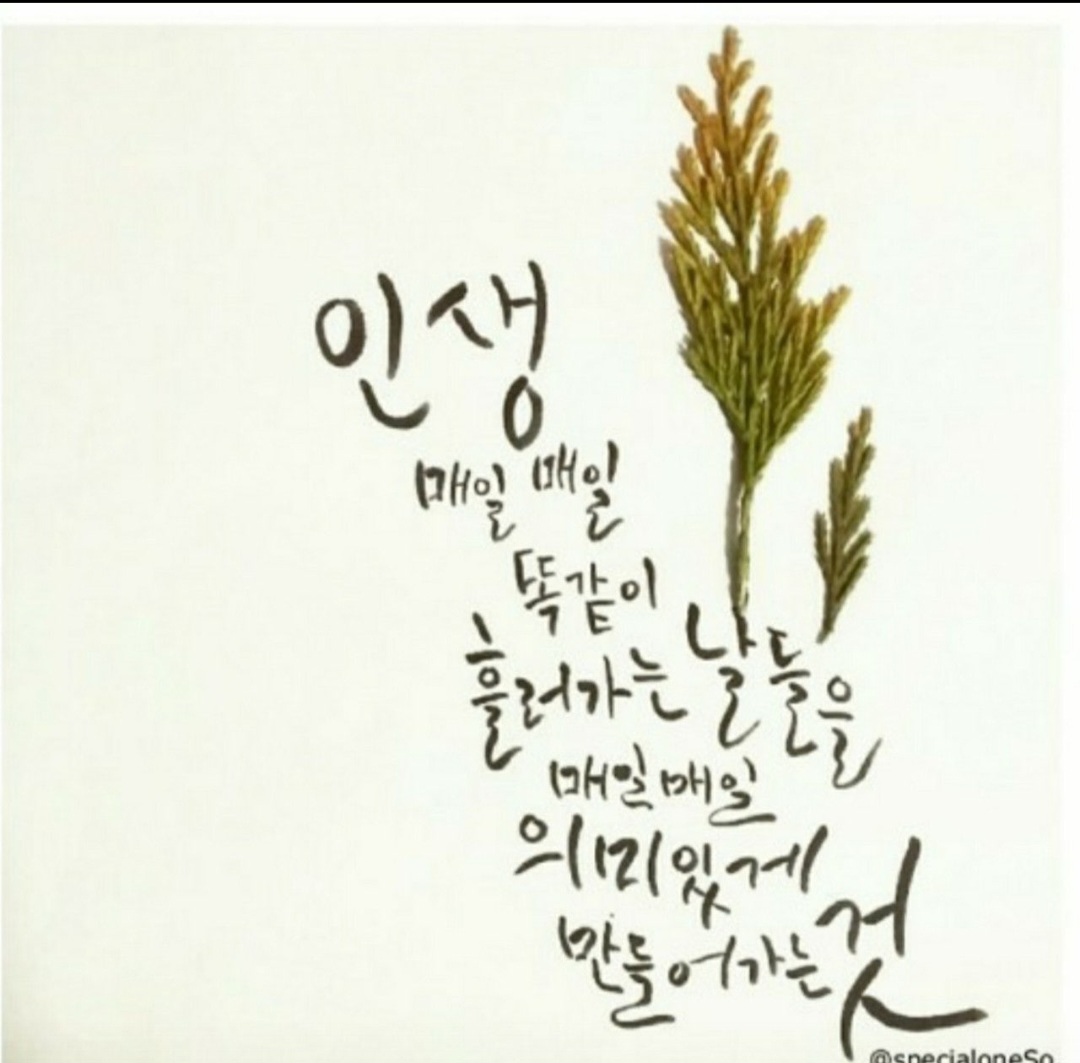 인생
매일 매일
똑같이
흘러가는 날들을
매일매일
의미있게
만들어가는 것
@specialoneSo